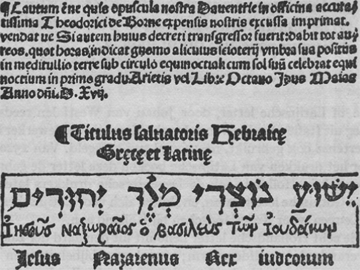 ¶Cautum ēne quis opuscula nostra Dauentrie in officina accura
tissima Theodorici de Borne expensis nostris excussa imprimat.
vendat ve Si autem huius decreti transgressor fuerit: dabit tot au
reos, quot horas, indicat gnomo alicuius ioterij ymbra sus positus
in meditullio terre sub circulo equinoctiali cum sol sub celebrat equi
noctium in primo gradu Arietis vel Libre Octauo Idus Maias
Anno dñi. D. Xvij.
¶Titulus saluatoris Hebraice
Grece et latine
ישוע נוצרי מלך יהודים
Ἰησοῦς Ναζωραῖος ὁ βασιλεύς τῶν Ἰουδαίων
Jesus Nazarenus Rex iudeorum